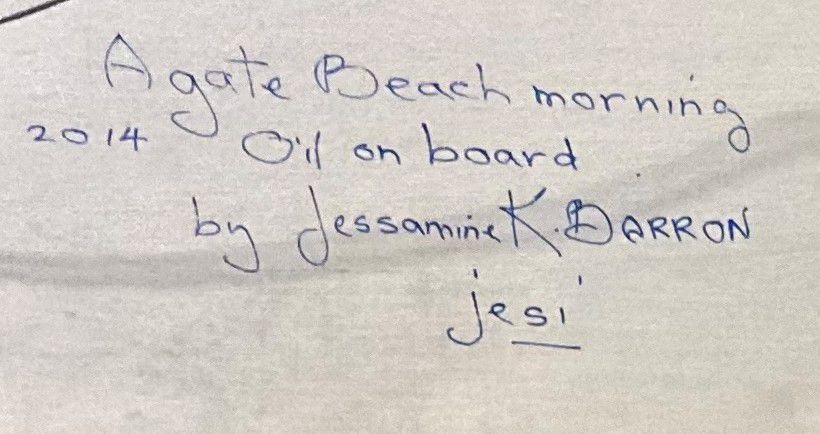 Agate Beach morning
2014 Oil on board
by Jessamine K. DARRON
jesi